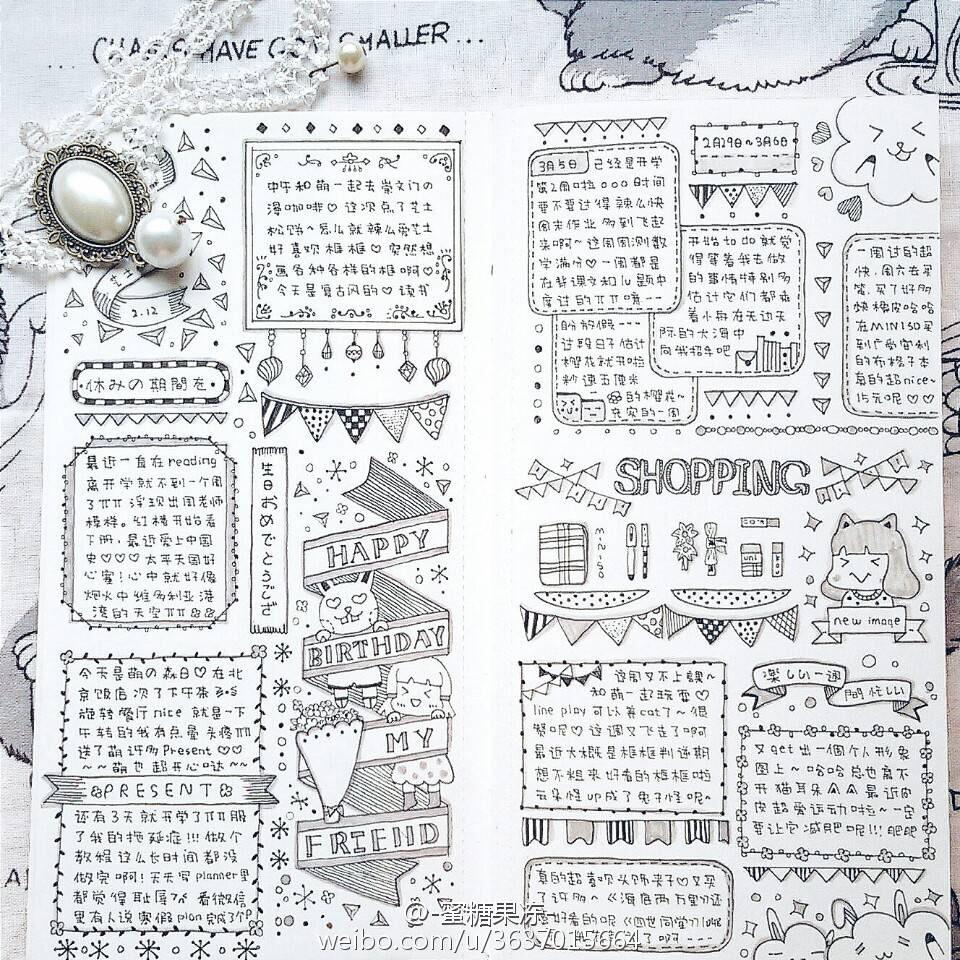 ... CHA
HAVE GO
MALLER ...
2.12
中午和萌一起去崇文门の
漫咖啡♡这次点了芝士
松饼~怎么就辣么爱芝士
好喜欢框框♡突然想
画各种各样的框啊♡
今天是复古风的♡读书
休みの期間を
最近一直在reading
离开学就不到一个周
了ΠΠ浮现出周老师
模样。红楼开始看
下册,最近爱上中国
史♡♡♡太平天国好
心塞!心中就好像
烟火中维多利亚港
湾的天空ΠΠ
生日おめでとうござ
HAPPY
BIRTHDAY
MY
FRIEND
今天是萌の森日♡在北
京饭店次了下午茶
旋转餐厅nice 就是一下
午转的我有点晕头疼ΠΠ
送了萌许多Present♡♡
~~萌也超开心哒~~
PRESENT
还有3天就开学了ΠΠ服
了我的拖延症!!!做个
教程这么长时间都没
做完啊!天天写planner里
都觉得耻辱 看微信
里有人说寒假plan完成了个P
2月29日~3月6日
3月5日
已经是开学
第2周啦ooo时间
要不要过得辣么快
周末作业多到飞起
来啊~这周周测数
学满分♡一周都是
在背课文和
题中
度过的ΠΠ噢--
开始to do就觉
得等着我去做
的事情特别多
估计它们都乘
着小舟在无边天
际的大海中
向我招手吧
盼放假---
过段日子估计
樱花就开啦
秒速五厘米
の樱花~
充实的一周
一周过的超
快,周六去买
笔,买了好多
快橡皮哈哈
在MINISO买
到广受宫利
的布格子本
真的超nice~
15元呢♡♡
SHOPPING
MINISO
uni
new image
这周又不上课~
和萌一起玩耍♡
line play可以养cat了~很
赞呢♡这周又飞走了啊
最近大概是框框判逆期
想不粗来好看的框框啦
云朵怪up成了兔子怪呢~
楽しい一週
間忙しい
又get出一个个人形象
图上~哈哈总也离不
开猫耳朵ΑΑ最近肉
皮超爱运动啦~一定
要让它减肥呢!!!肥肥
真的超喜欢头饰夹子♡又买
了许多~《海底两万里》还
挺好看的呢《四世同堂》
@-蜜糖果冻-
weibo.com/u/3637015664